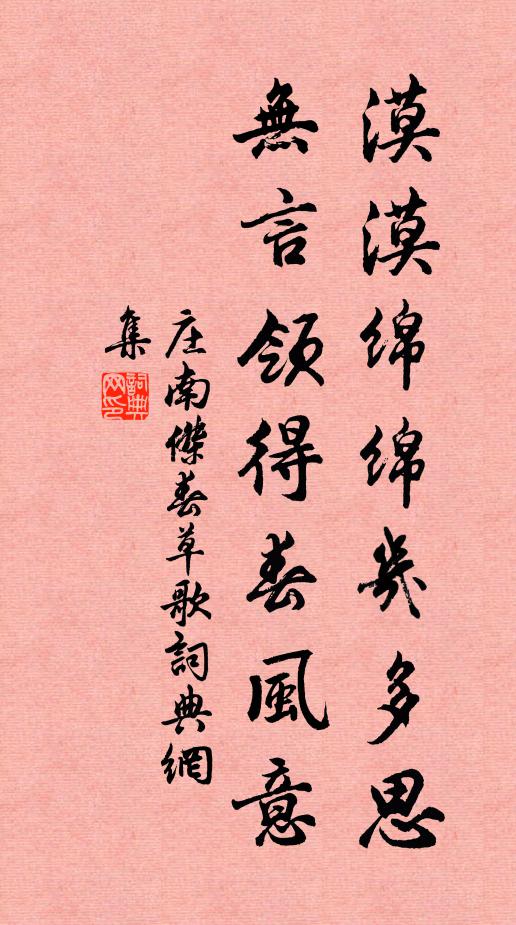 漠漠綿綿幾多思
無言領得春風意
庄南傑春草歌詞典網
集
詞典網印